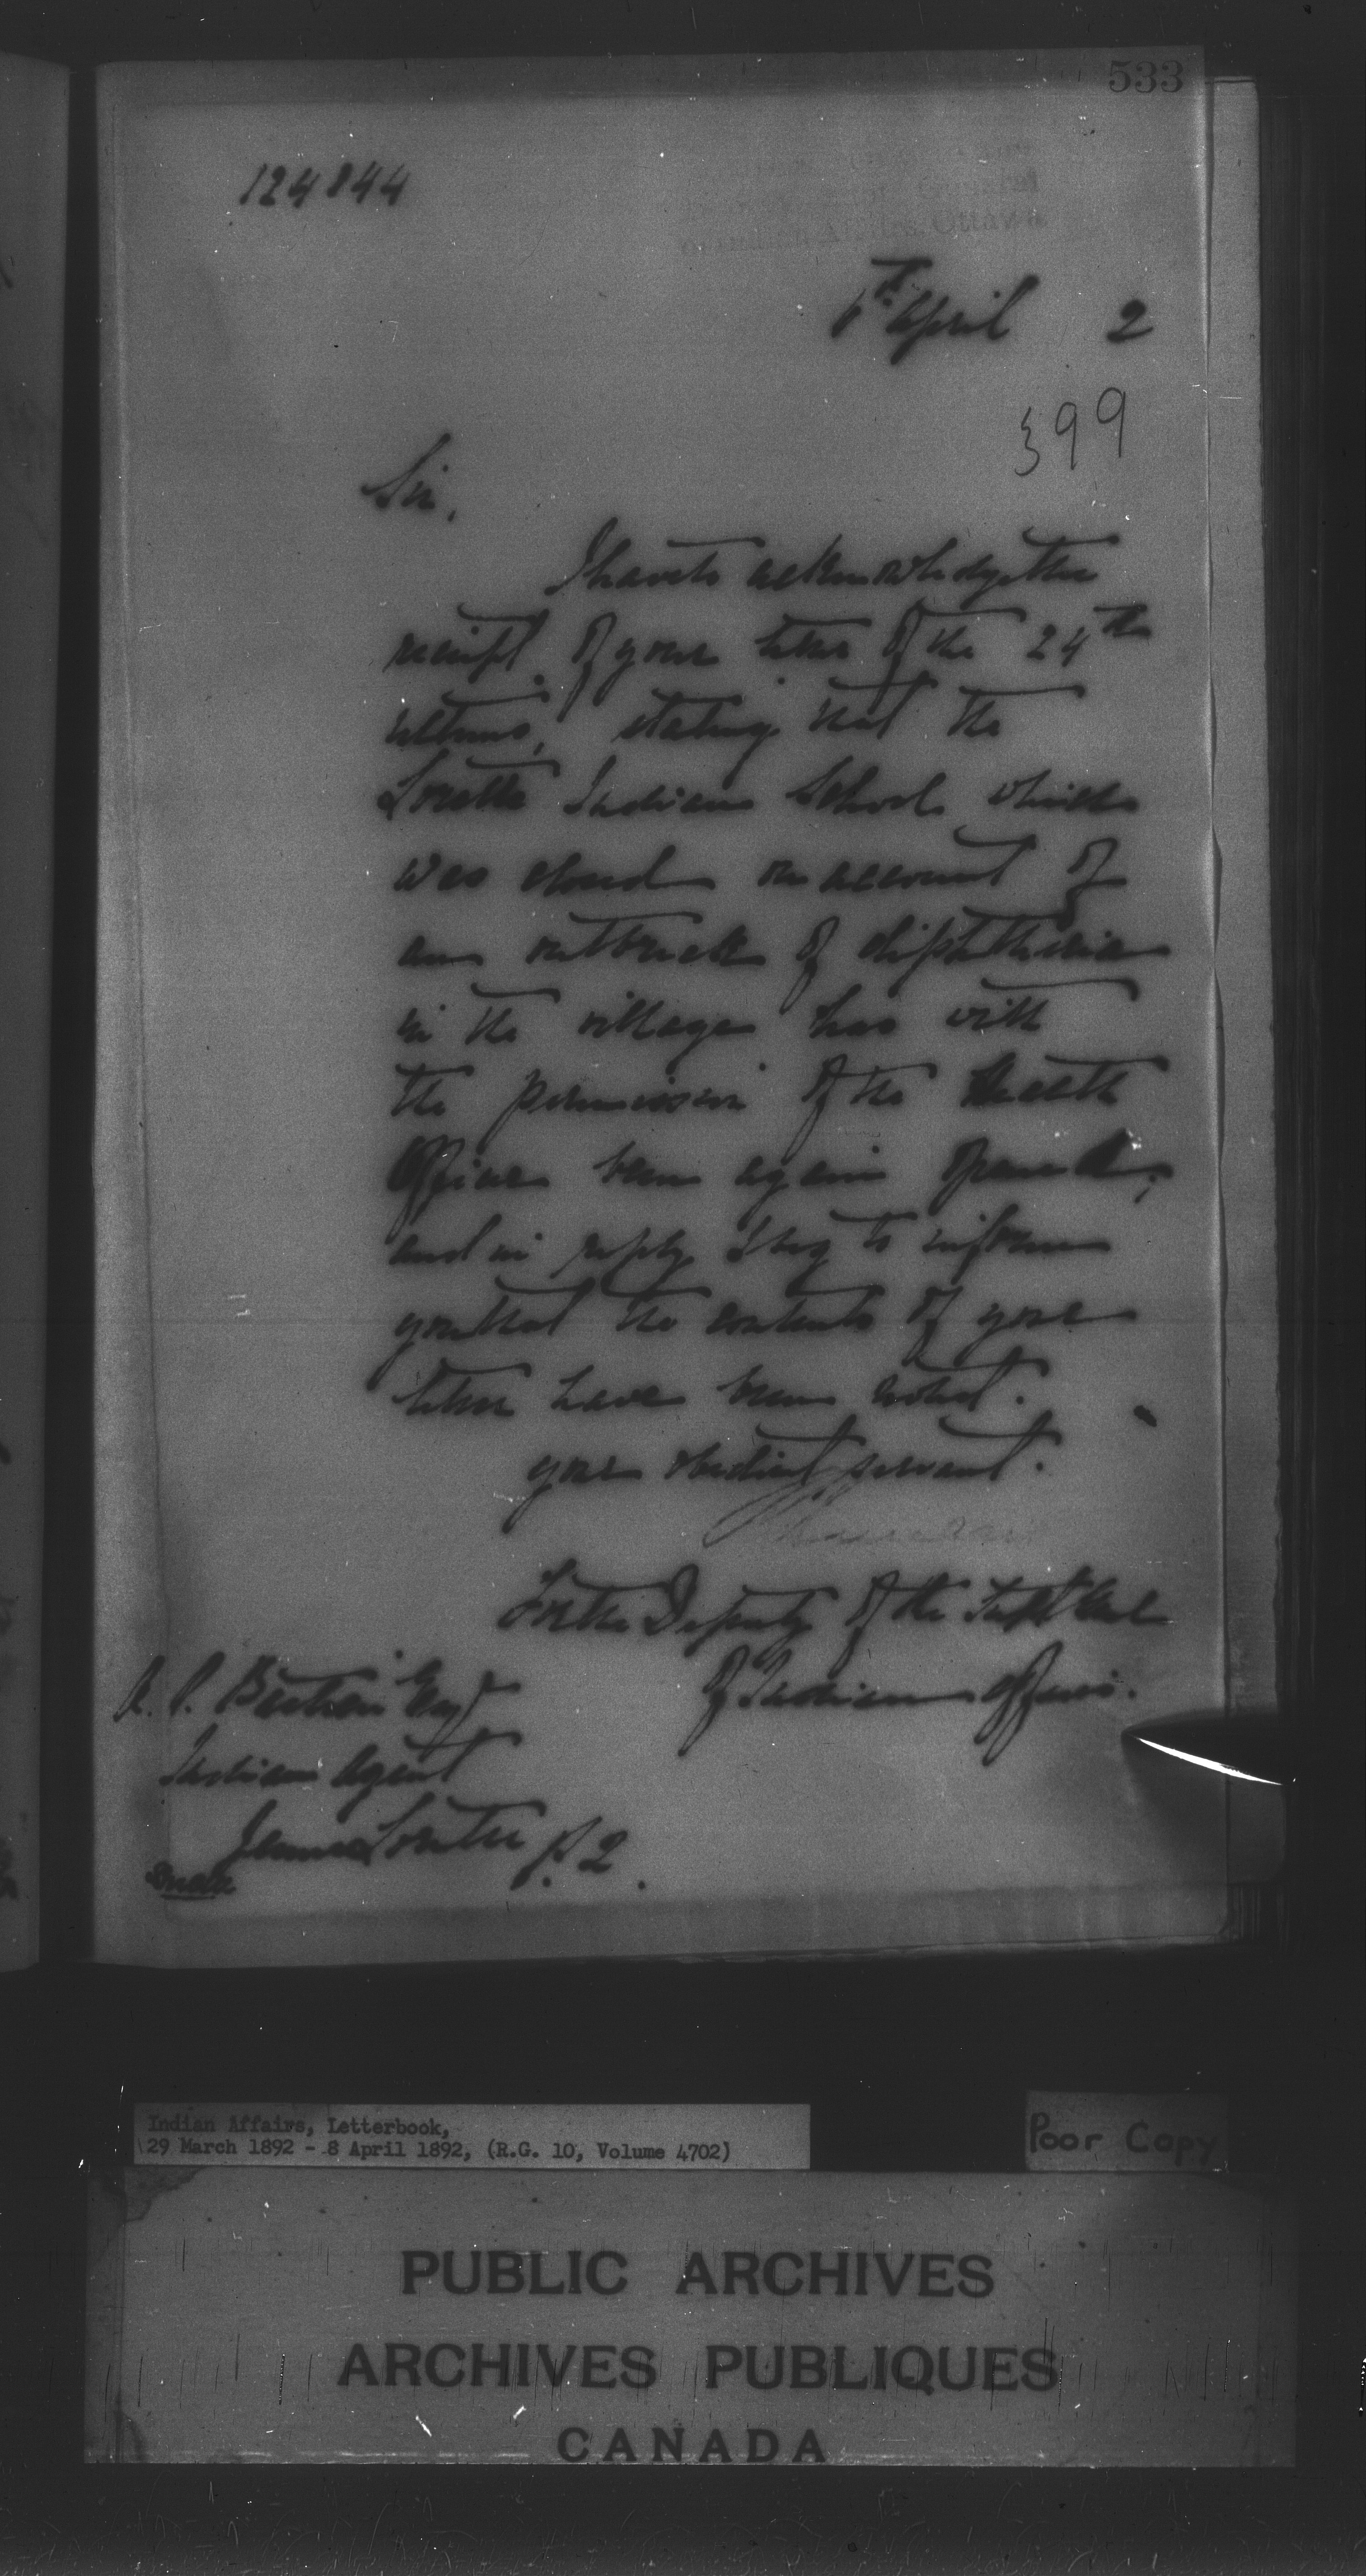 533
124844
6th April 2
399
Sir,
I have to acknowledge the
receipt of your letter of the 24th
ultimo, stating that the
Lorette Indian School which
was closed on account of
an outbreak of diphtheria
in the village has with
the permission of the Health
Officer been again opened;
and in reply I beg to inform
you that the contents of your
letter have been noted.
your obedient servant.
For the Deputy of the Supt Genl
of Indian Affairs.
A. O. Bastien Esq
Indian Agent
Jeune Lorette P.Q.
Indian Affairs, Letterbook,
29 March 1892 - 8 April 1892, (R.G. 10, Volume 4702)
Poor Copy
PUBLIC ARCHIVES
ARCHIVES PUBLIQUES
CANADA